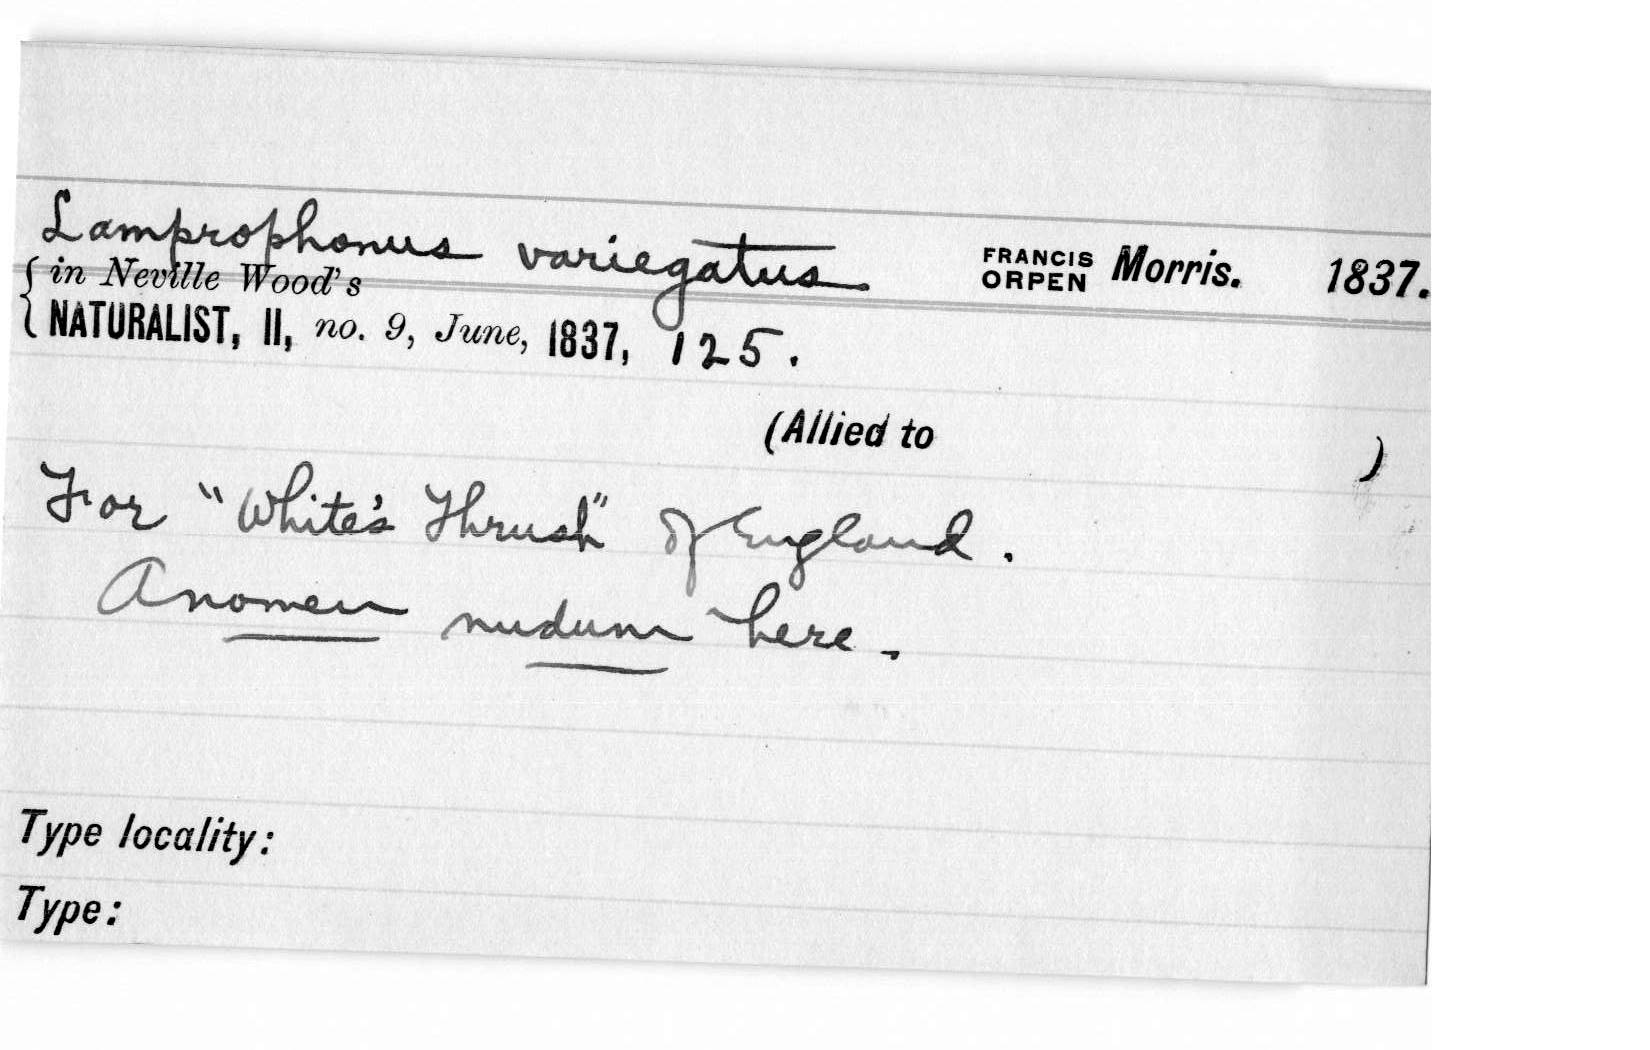 Lamprophonus variegatus FRANCIS ORPEN Morris. 1837.
{ in Neville Wood's
NATURALIST, II, no. 9, June, 1837, 125.
(Allied to )
For "White's Thrush" of England.
A nomen nudum here.
Type locality:
Type: